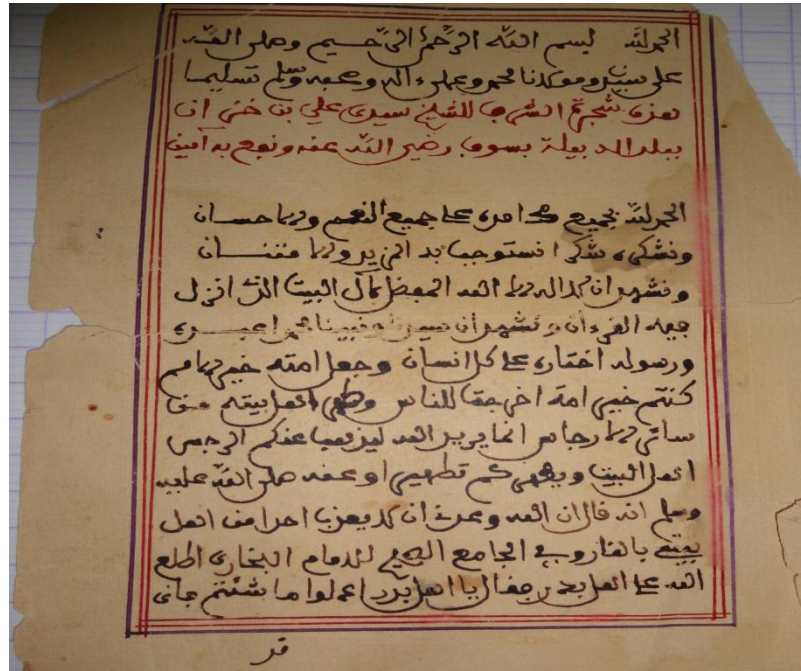 الحمد لله بسم الله الرحمن الرحيم وصلى الله
على سيدنا ومولانا محمد وعلى ءاله وصحبه وسلم تسليما
هذه شجرة الشرفا للشيخ سيدي علي بن
ببلد الدبيلة بسوف رضي الله عنه ونفع به آمين
الحمد لله بجميع محامده على جميع النعم والاحسان
ونشكره شكرا نستوجب به المزيد والامتنان
ونشهد ان لا اله الا الله المفضل لآل البيت الذي انزل
فيهم القرءان ونشهد ان سيدنا ونبينا محمدا عبده
ورسوله اختاره على كل انسان وجعل امته خير الامم
كنتم خير امة اخرجت للناس وطهر اهل بيته من
سائر الارجاس انما يريد الله ليذهب عنكم الرجس
اهل البيت ويطهركم تطهيرا وعنه صلى الله عليه
وسلم انه قال ان الله وعدني ان لا يعذب احدا من اهل
بيتي بالنار وفي الجامع الصحيح للامام البخاري اطلع
الله على اهل بدر فقال يا اهل بدر اعملوا ما شئتم فاني
قد